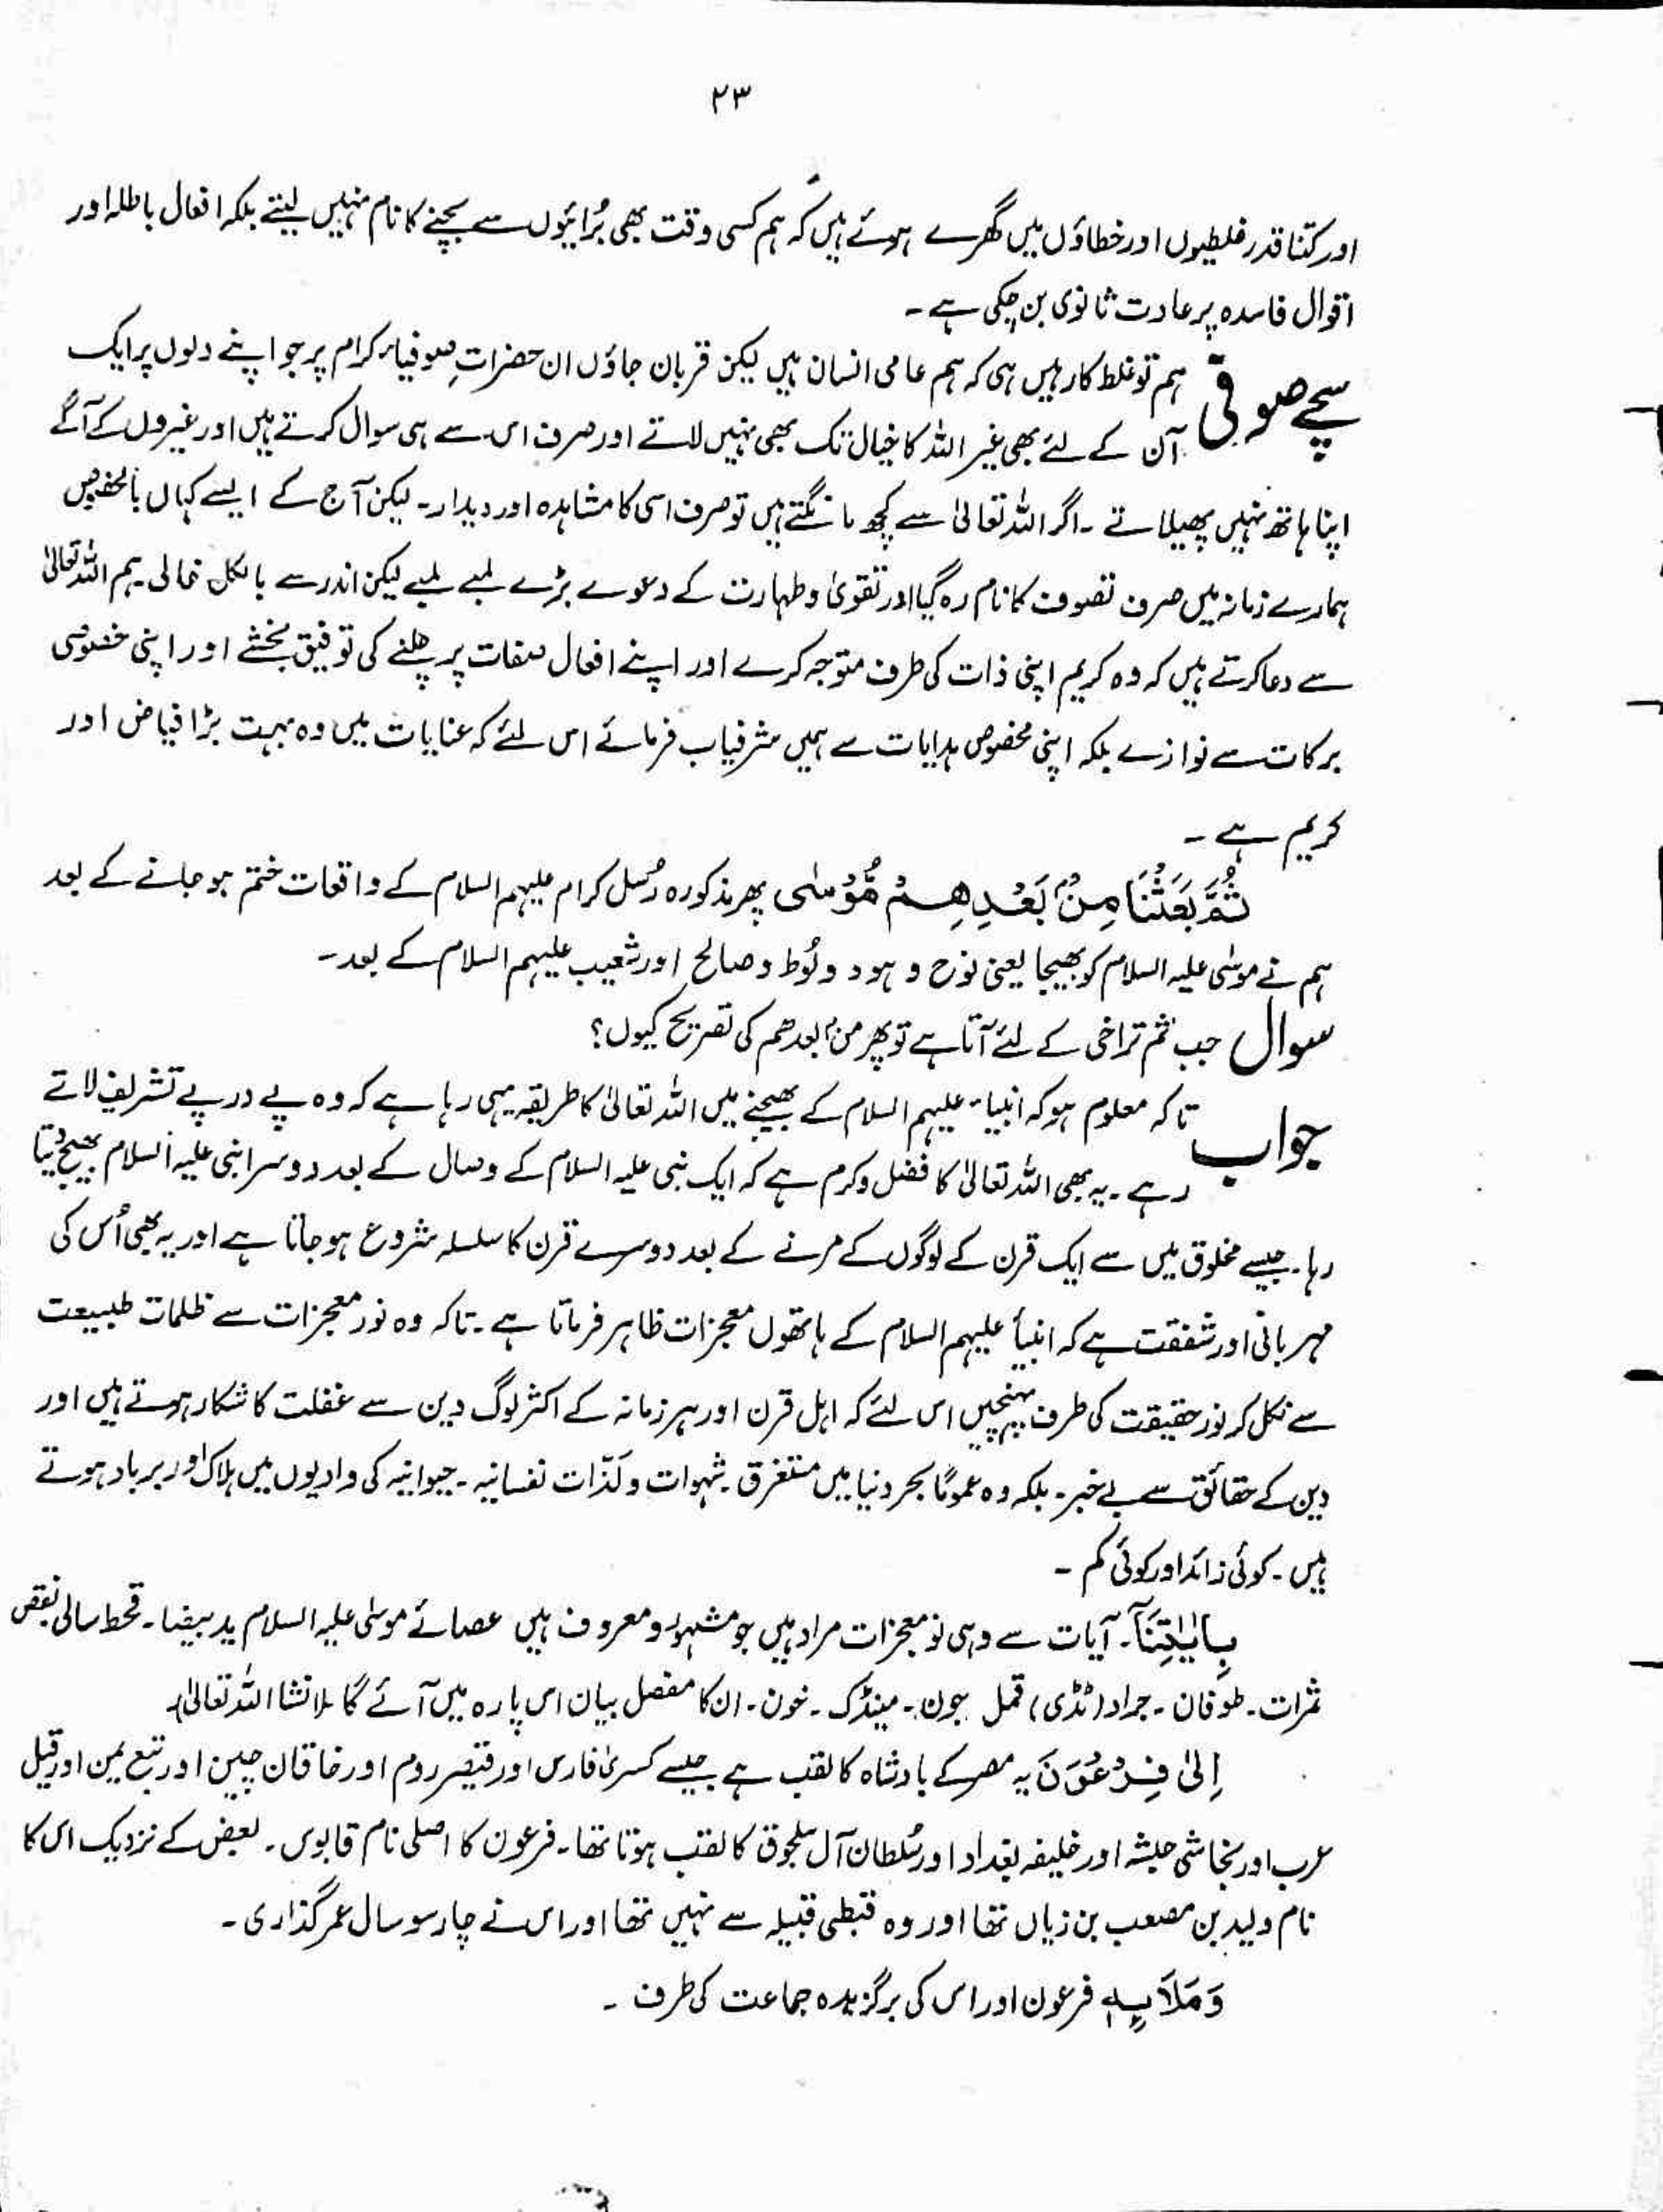 ۲۳
اور کتنا قدر غلطیوں اور خطاؤں میں گھرے ہوئے ہیں کہ ہم کسی وقت بھی بُرائیوں سے بچنے کا نام نہیں لیتے بلکہ افعال باطلہ اور
اقوال فاسدہ پر عادت ثانوی بن چکی ہے۔
سچے صوفی ہم تو غلط کار ہیں ہی کہ ہم عامی انسان ہیں لیکن قربان جاؤں ان حضراتِ صوفیاء کرام پر جو اپنے دلوں پر ایک
آن کے لئے بھی غیر اللہ کا خیال تک بھی نہیں لاتے اور صرف اس سے ہی سوال کرتے ہیں اور غیروں کے آگے
اپنا ہاتھ نہیں پھیلاتے۔ اگر اللہ تعالیٰ سے کچھ مانگتے ہیں تو صرف اسی کا مشاہدہ اور دیدار۔ لیکن آج کے ایسے کہاں بالخصوص
ہمارے زمانہ میں صرف تصوف کا نام رہ گیا اور تقویٰ و طہارت کے دعوے بڑے لمبے لمبے لیکن اندر سے بالکل خالی۔ ہم اللہ تعالیٰ
سے دعا کرتے ہیں کہ وہ کریم اپنی ذات کی طرف متوجہ کرے اور اپنے افعال صفات پر چلنے کی توفیق بخشے اور اپنی خصوصی
برکات سے نوازے بلکہ اپنی مخصوص ہدایات سے ہمیں شرفیاب فرمائے اس لئے کہ عنایات میں وہ بہت بڑا فیاض اور
کریم ہے۔
ثُمَّ بَعَثْنَا مِنْۢ بَعْدِهِمْ مُّوْسٰى پھر مذکورہ رُسل کرام علیہم السلام کے واقعات ختم ہو جانے کے بعد
ہم نے موسٰی علیہ السلام کو بھیجا یعنی نوح و ہود و لُوط و صالح اور شعیب علیہم السلام کے بعد۔
سوال جب ثم تراخی کے لئے آتا ہے تو پھر من بعدھم کی تصریح کیوں؟
جواب تاکہ معلوم ہو کہ انبیاء علیہم السلام کے بھیجنے میں اللہ تعالیٰ کا طریقہ یہی رہا ہے کہ وہ پے در پے تشریف لاتے
رہے۔ یہ بھی اللہ تعالیٰ کا فضل و کرم ہے کہ ایک نبی علیہ السلام کے وصال کے بعد دوسرا نبی علیہ السلام بھیج دیتا
رہا۔ جیسے مخلوق میں سے ایک قرن کے لوگوں کے مرنے کے بعد دوسرے قرن کا سلسلہ شروع ہو جاتا ہے اور یہ بھی اُس کی
مہربانی اور شفقت ہے کہ انبیأ علیہم السلام کے ہاتھوں معجزات ظاہر فرماتا ہے۔ تاکہ وہ نور معجزات سے ظلمات طبیعت
سے نکل کر نور حقیقت کی طرف پہنچیں اس لئے کہ اہل قرن اور ہر زمانہ کے اکثر لوگ دین سے غفلت کا شکار ہوتے ہیں اور
دین کے حقائق سے بے خبر۔ بلکہ وہ عموماً بحر دنیا میں مستغرق۔ شہوات و لذّات نفسانیہ۔ حیوانیہ کی وادیوں میں ہلاک اور برباد ہوتے
ہیں۔ کوئی زائد اور کوئی کم۔
بِاٰيٰتِنَآ۔ آیات سے وہی نو معجزات مراد ہیں جو مشہور و معروف ہیں عصائے موسٰی علیہ السلام ید بیضا۔ قحط سالی نقص
ثمرات۔ طوفان۔ جراد (ٹڈی) قمل جون۔ مینڈک۔ خون۔ ان کا مفصل بیان اس پارہ میں آئے گا (انشا اللہ تعالیٰ)۔
اِلٰى فِرْعَوْنَ یہ مصر کے بادشاہ کا لقب ہے جیسے کسریٰ فارس اور قیصر روم اور خاقان چین اور تبع یمن اور قیل
عرب اور نجاشی حبشہ اور خلیفہ بغداد اور سُلطان آل سلجوق کا لقب ہوتا تھا۔ فرعون کا اصلی نام قابوس۔ بعض کے نزدیک اس کا
نام ولید بن مصعب بن زیاں تھا اور وہ قبطی قبیلہ سے نہیں تھا اور اس نے چار سو سال عمر گذاری۔
وَمَلَا۟ىِٕهٖ فرعون اور اس کی برگزیدہ جماعت کی طرف۔